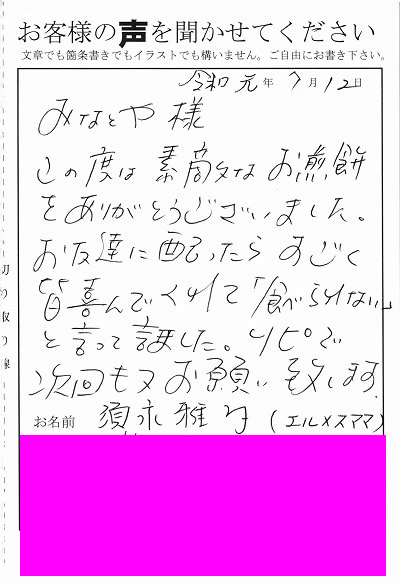 お客様の声を聞かせてください
文章でも箇条書きでもイラストでも構いません。ご自由にお書き下さい。
令和 元 年 7 月 12 日
みなとや 様
この度は 素敵なお煎餅
をありがとうございました。
お友達に配ったら すごく
皆喜んでくれて「食べられない」
と言って 居ました。リピで
次回も又 お願い致します
お名前 須永 雅子 (エルメスママ)
切り取り線